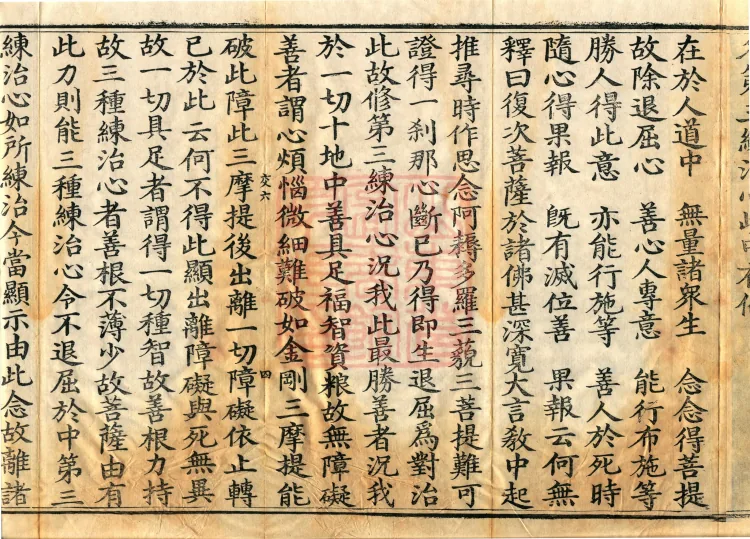 在於人道中　無量諸眾生　念念得菩提
故除退屈心　善心人專意　能行布施等
勝人得此意　亦能行施等　善人於死時
隨心得果報　旣有滅位善　果報云何無
釋曰復次菩薩於諸佛甚深寬大言敎中起
推尋時作思念阿耨多羅三藐三菩提難可
證得一刹那心斷已乃得即生退屈爲對治
此故修第三練治心況我此最勝善者況我
於一切十地中善具足福智資粮故無障礙
善者謂心煩惱微細難破如金剛三摩提能
破此障此三摩提後出離一切障礙依止轉
交六　四
已於此云何不得此顯出離障礙與死無異
故一切具足者謂得一切種智故善根力持
故三種練治心者善根不薄少故菩薩由有
此力則能三種練治心令不退屈於中第三
練治心如所練治今當顯示由此念故離諸